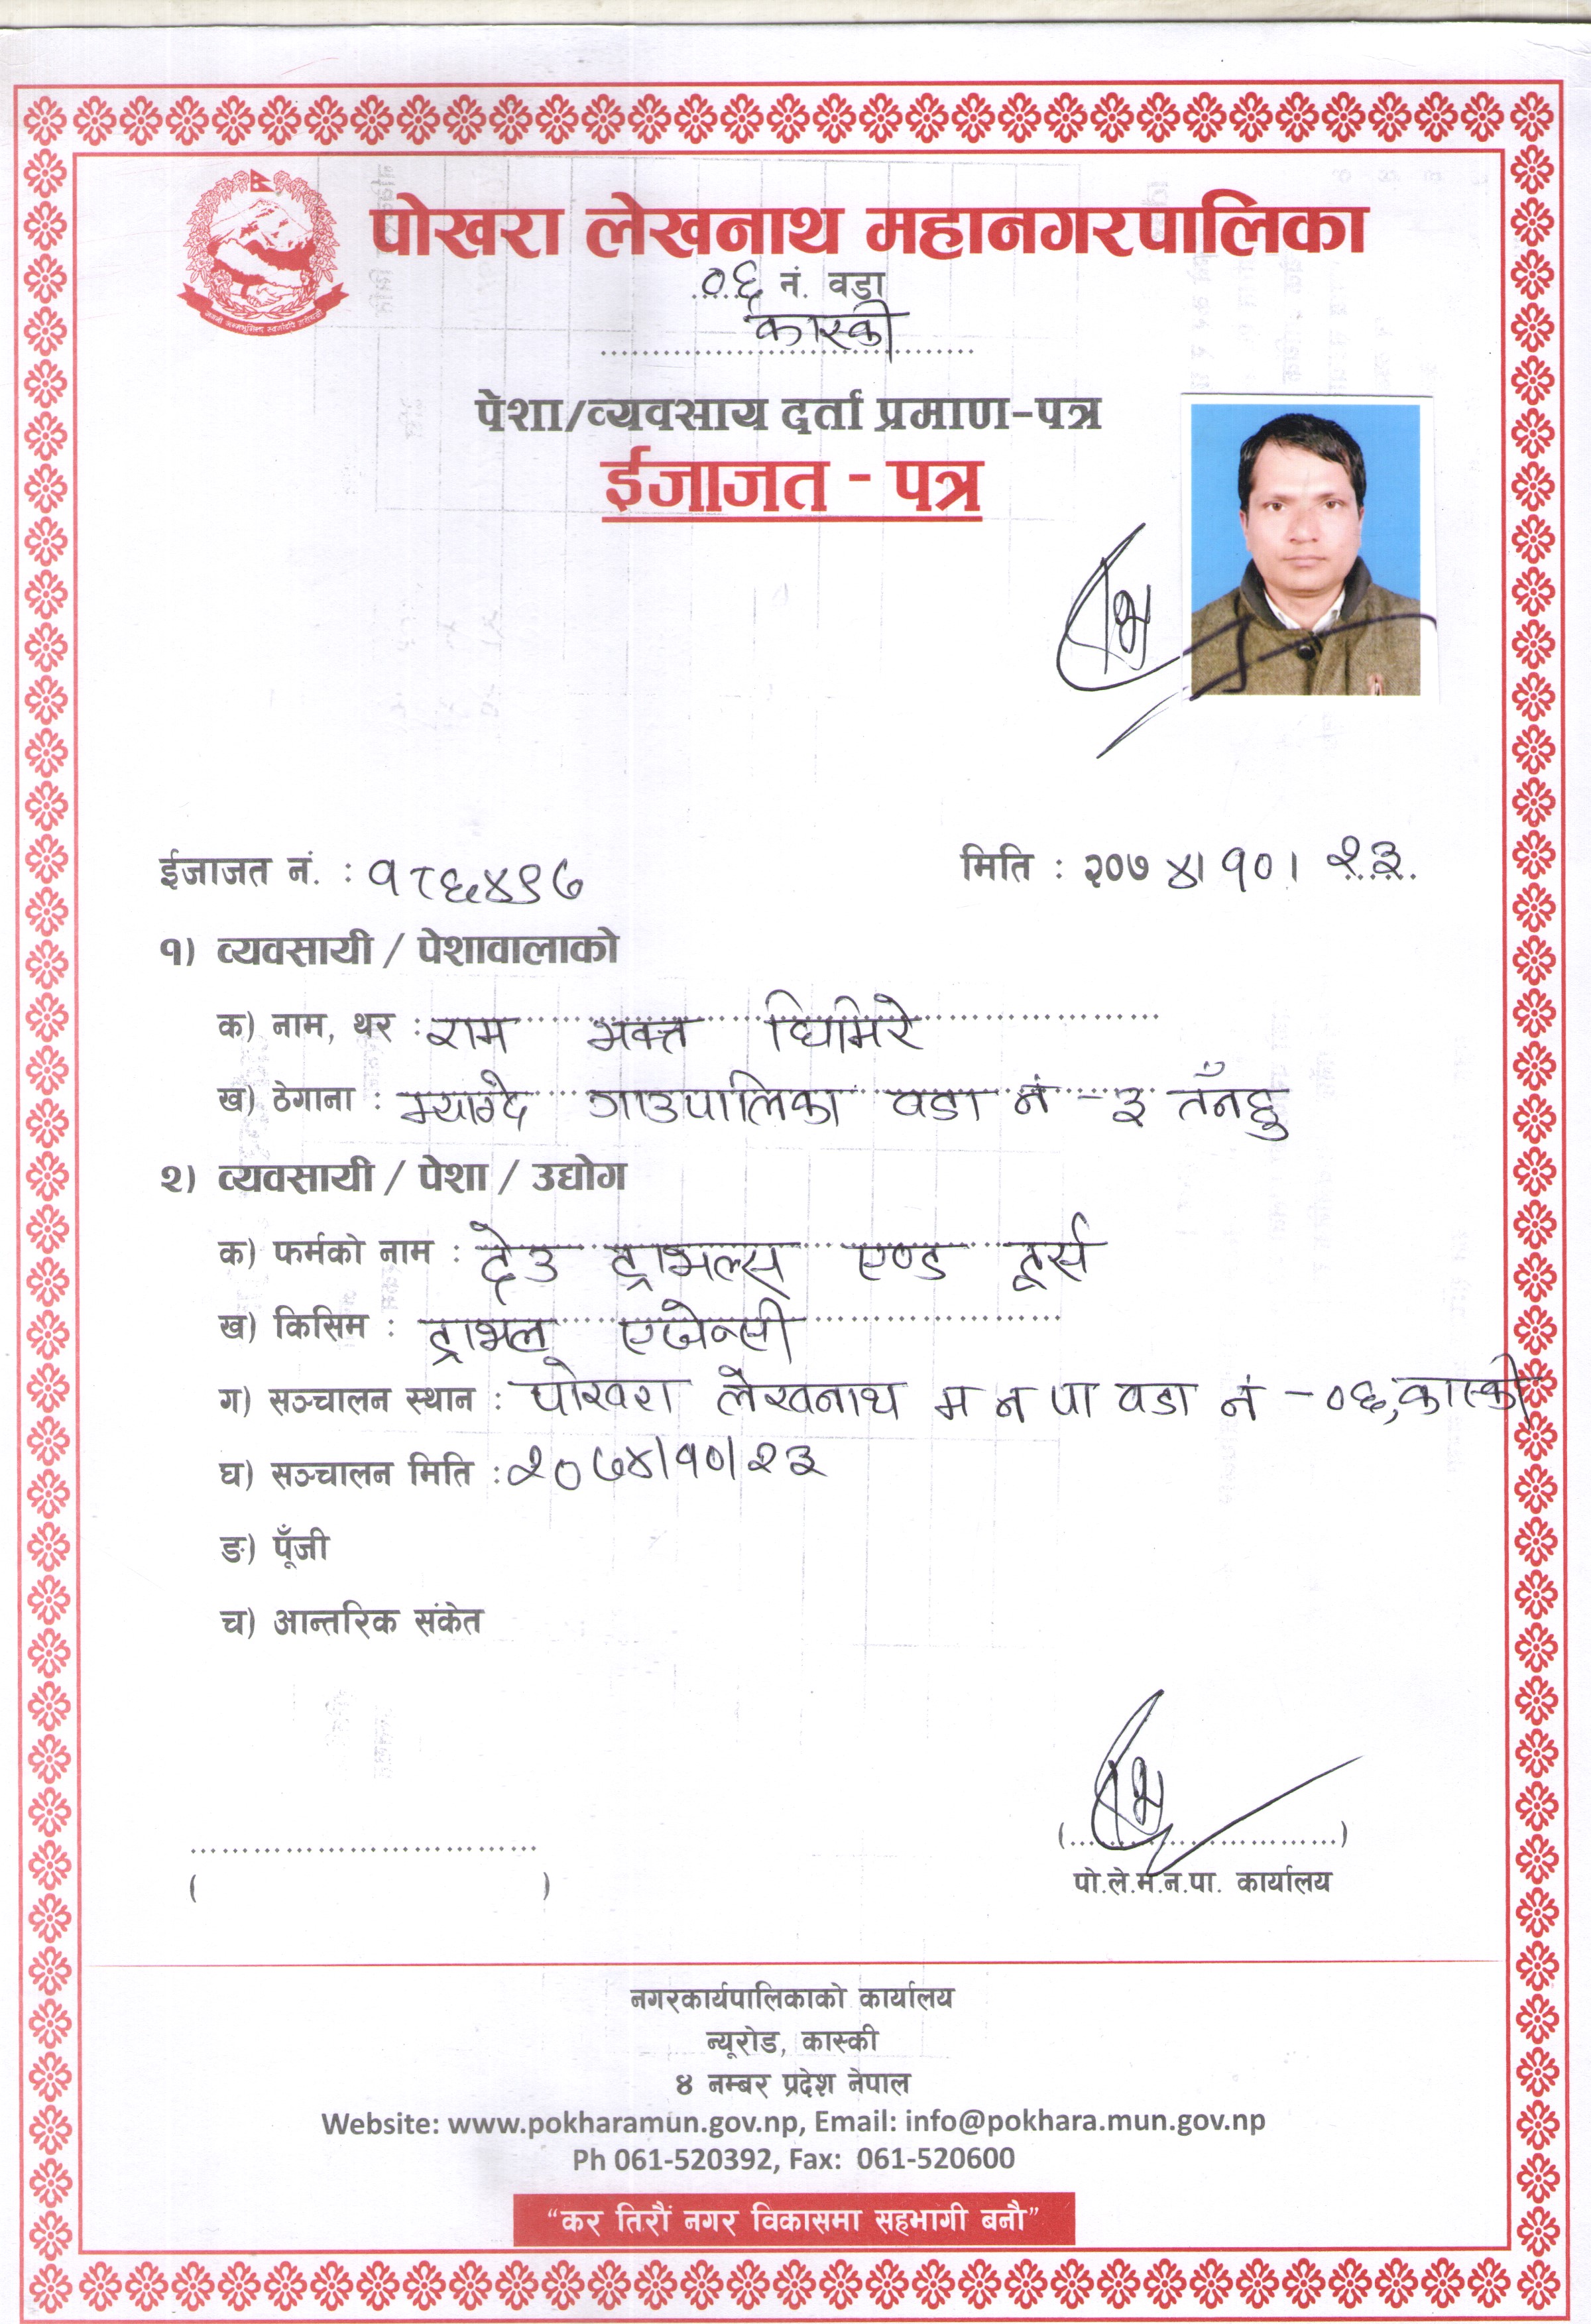 पोखरा लेखनाथ महानगरपालिका
०६ नं. वडा
कास्की
पेशा/व्यवसाय दर्ता प्रमाण-पत्र
ईजाजत - पत्र
ईजाजत नं. : १८६४९७
मिति : २०७४।१०।२३
१) व्यवसायी / पेशावालाको
क) नाम, थर : राम भक्त घिमिरे
ख) ठेगाना : म्याग्दे गाउपालिका वडा नं - ३ तँनहु
२) व्यवसायी / पेशा / उद्योग
क) फर्मको नाम : देउ ट्राभल्स एण्ड टूर्स
ख) किसिम : ट्राभल एजेन्सी
ग) सञ्चालन स्थान : पोखरा लेखनाथ म न पा वडा नं - ०६, कास्की
घ) सञ्चालन मिति : २०७४।१०।२३
ङ) पूँजी
च) आन्तरिक संकेत
पो.ले.म.न.पा. कार्यालय
नगरकार्यपालिकाको कार्यालय
न्यूरोड, कास्की
४ नम्बर प्रदेश नेपाल
Website: www.pokharamun.gov.np, Email: info@pokhara.mun.gov.np
Ph 061-520392, Fax: 061-520600
“कर तिरौं नगर विकासमा सहभागी बनौ”